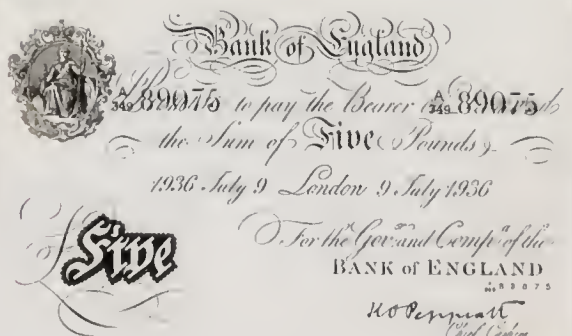 Bank of England
A/349 89075 to pay the Bearer A/349 89075
the Sum of Five Pounds
1936 July 9 London 9 July 1936
Five
For the Govr. and Compa. of the
BANK of ENGLAND
K O Peppiatt
Chief Cashier